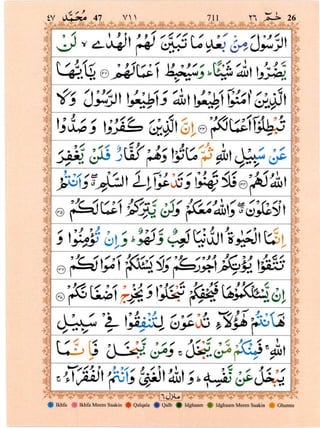 ٤٧ مُحَمَّد 47 ٧١١ 711 حٰمٓ ٢٦ 26
الرَّسُوۡلَ مِنۡۢ بَعۡدِ مَا تَبَيَّنَ لَهُمُ الۡهُدٰى ۙ لَنۡ
يَّضُرُّوا اللّٰهَ شَيۡــًٔا ؕ وَسَيُحۡبِطُ اَعۡمَالَهُمۡ ﴿۳۲﴾ يٰۤاَيُّهَا
الَّذِيۡنَ اٰمَنُوۡۤا اَطِيۡعُوا اللّٰهَ وَ اَطِيۡعُوا الرَّسُوۡلَ وَلَا
تُبۡطِلُوۡۤا اَعۡمَالَـكُمۡ ﴿۳۳﴾ اِنَّ الَّذِيۡنَ كَفَرُوۡا وَ صَدُّوۡا
عَنۡ سَبِيۡلِ اللّٰهِ ثُمَّ مَاتُوۡا وَهُمۡ كُفَّارٌ فَلَنۡ يَّغۡفِرَ
اللّٰهُ لَهُمۡ ﴿۳۴﴾ فَلَا تَهِنُوۡا وَ تَدۡعُوۡۤا اِلَى السَّلۡمِ ۖ وَاَنۡـتُمُ
الۡاَعۡلَوۡنَ ۖ وَاللّٰهُ مَعَكُمۡ وَلَنۡ يَّتِرَكُمۡ اَعۡمَالَـكُمۡ ﴿۳۵﴾
اِنَّمَا الۡحَيٰوةُ الدُّنۡيَا لَعِبٌ وَّلَهۡوٌ ؕ وَاِنۡ تُؤۡمِنُوۡا وَ
تَتَّقُوۡا يُؤۡتِكُمۡ اُجُوۡرَكُمۡ وَلَا يَسۡــَٔلۡكُمۡ اَمۡوَالَكُمۡ ﴿۳۶﴾
اِنۡ يَّسۡــَٔلۡكُمُوۡهَا فَيُحۡفِكُمۡ تَبۡخَلُوۡا وَيُخۡرِجۡ اَضۡغَانَكُمۡ ﴿۳۷﴾
هٰۤاَنۡتُمۡ هٰٓؤُلَآءِ تُدۡعَوۡنَ لِتُنۡفِقُوۡا فِىۡ سَبِيۡلِ
اللّٰهِ ۚ فَمِنۡكُمۡ مَّنۡ يَّبۡخَلُ ۚ وَمَنۡ يَّبۡخَلۡ فَاِنَّمَا
يَبۡخَلُ عَنۡ نَّفۡسِهٖ ؕ وَاللّٰهُ الۡغَنِىُّ وَاَنۡتُمُ الۡفُقَرَآءُ ۚ
منزل ٦
Ikhfa Ikhfa Meem Saakin Qalqala Qalb Idghaam Idghaam Meem Saakin Ghunna